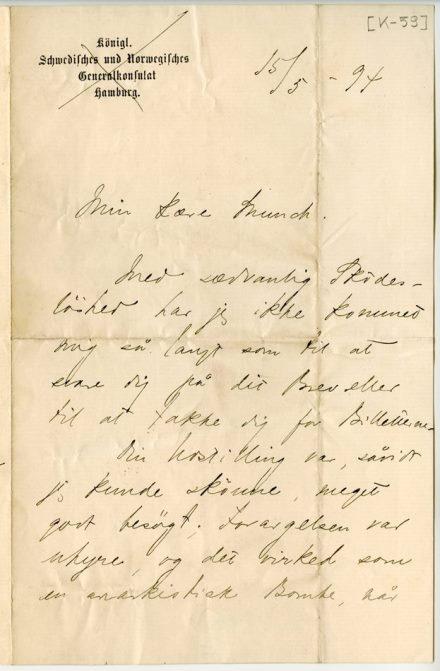 [K-59]
Königl.
Schwedisches und Norwegisches
Generalkonsulat
Hamburg.
15/5 - 94
Min kære Munch.
Med sædvanlig Skødes-
løshed har jeg ikke kommet
mig så langt som til at
svare dig på dit Brev eller
til at takke dig for Billetterne.
Din Udstilling var, såvidt
jeg kunde skönne, meget
godt besögt; Forargelsen var
uhyre, og det virked som
en anarkistisk Bombe, når